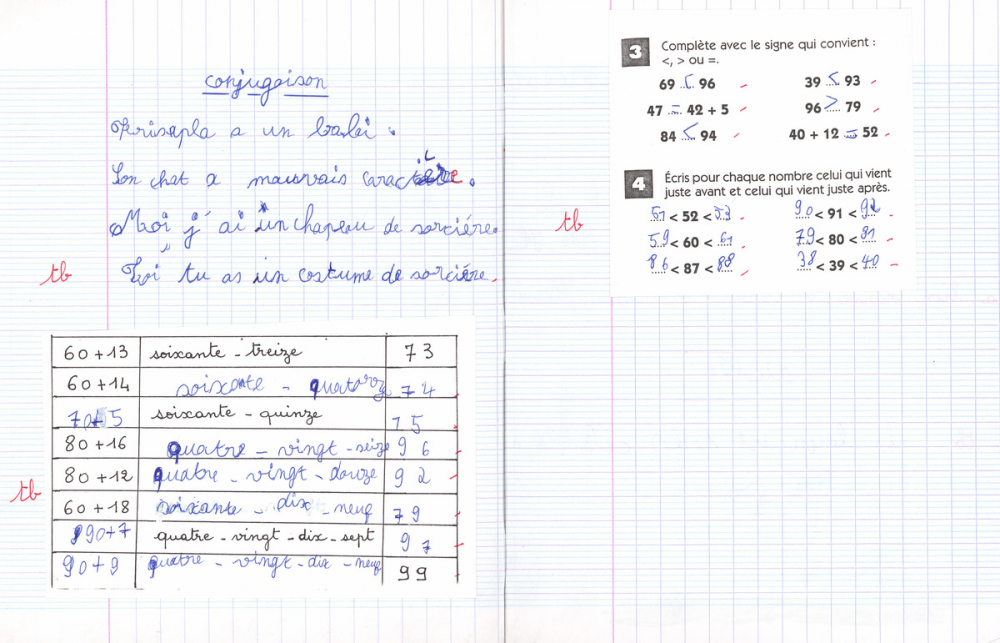 conjugaison
a un balai.
Son chat a mauvais caractère.
Moi j'ai un chapeau de sorcière.
tb Toi tu as un costume de sorcière.
60+13 soixante-treize 73
60+14 soixante-quatorz 74
70+5 soixante-quinze 75
80+16 quatre-vingt-seize 96
tb 80+12 quatre-vingt-douze 92
60+18 soixante-dix-neuf 79
90+7 quatre-vingt-dix-sept 97
90+9 quatre-vingt-dix-neuf 99
3 Complète avec le signe qui convient :
<, > ou =.
69 < 96 39 < 93
47 = 42 + 5 96 > 79
84 < 94 40 + 12 = 52
4 Écris pour chaque nombre celui qui vient
juste avant et celui qui vient juste après.
51 < 52 < 53 90 < 91 < 92
tb
59 < 60 < 61 79 < 80 < 81
86 < 87 < 88 38 < 39 < 40